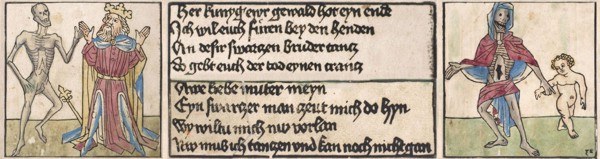 Her kunyg ewr gewald hot eyn ende
Ich wil euch füren bey den henden
An desir swarczen bruder tancz
Do gebt euch der tod eynen crancz
Awe liebe muter meyn
Eyn swarczer man zeut mich do hyn
Wy wiltu mich nw vorlan
Nw mus ich tanczen vnd kan noch nicht gan